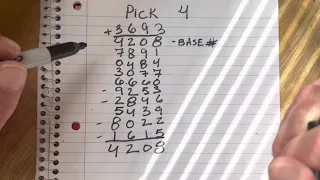 PICK 4
+3693
4208 -BASE#
7891
0484
3077
6660
-9253
-2846
5439
-8022
-1615
4208